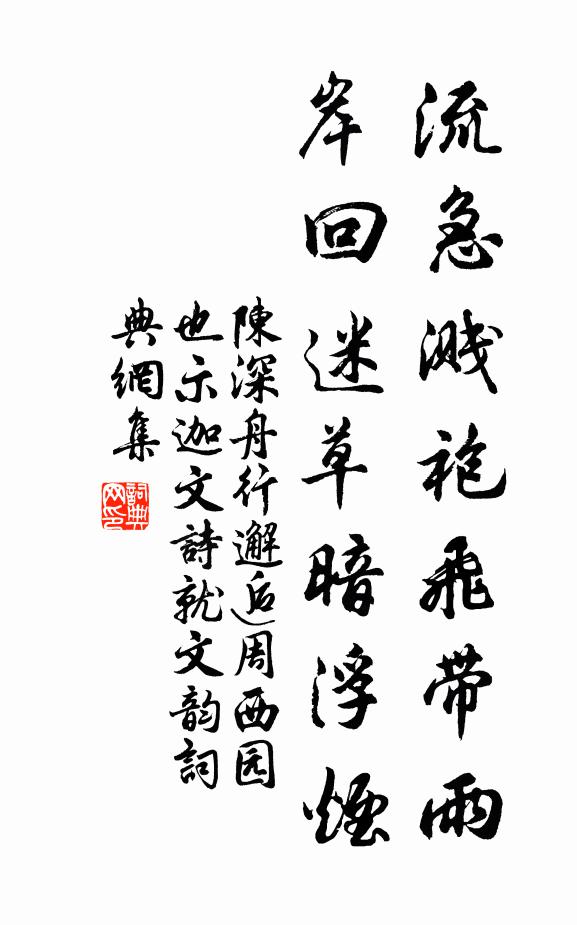 流急濺袍飛帶雨
岸回迷草暗浮煙
陳深舟行邂逅周西园
也示迦文詩就文韵詞
典網集
詞典
网印